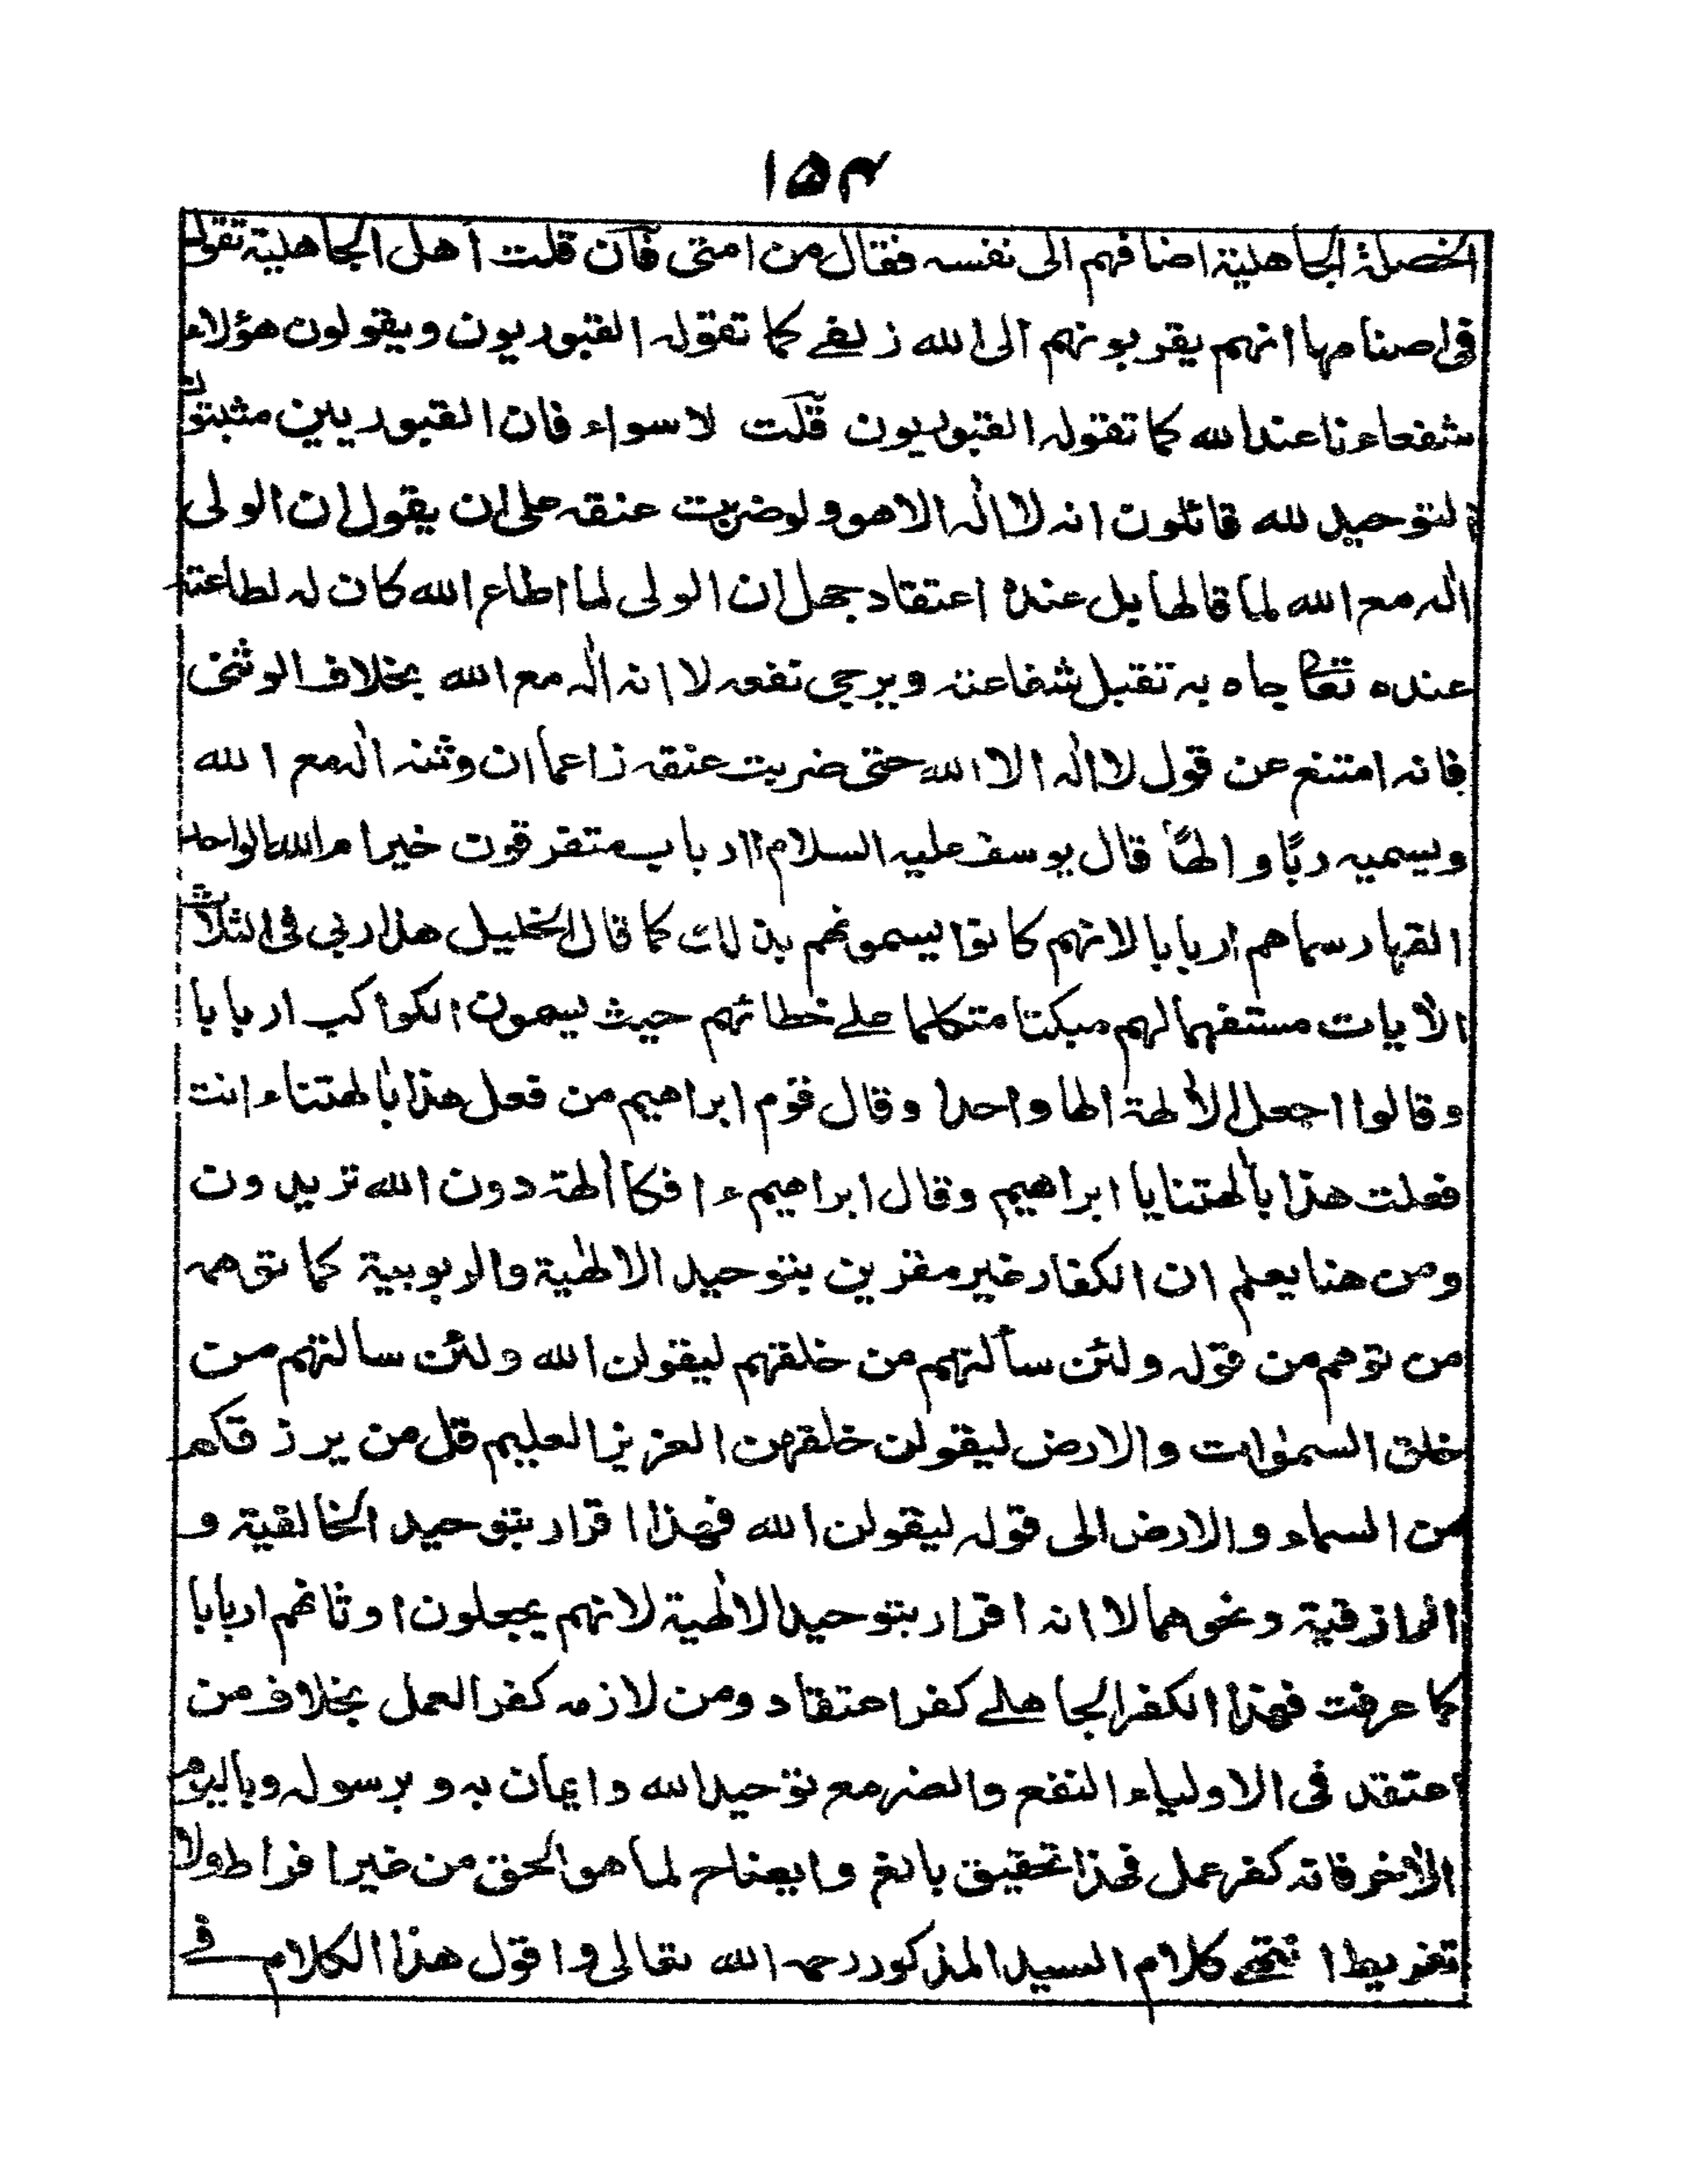 ١٥٣
الخصلة الجاهلية اضافهم الى نفسه فقال من امتى فان قلت اهل الجاهلية تقول
فى اصنامها انهم يقربونهم الى الله زلفے كما تقوله القبوريون ويقولون هؤلاء
شفعاءنا عند الله كما تقوله القبوريون قلت لا سواء فان القبوريين مثبتون
التوحيد لله قائلون انه لا اله الا هو ولو ضربت عنقه على ان يقول ان الولى
اله مع الله لما قالها بل عنده اعتقاد جهل ان الولى لما اطاع الله كان له لطاعته
عنده تعا جاه به تقبل شفاعته ويرجى نفعه لا انه اله مع الله بخلاف الوثنى
فانه امتنع عن قول لا اله الا الله حتى ضربت عنقه زاعما ان وثنه اله مع الله
ويسميه ربًا والهًا قال يوسف عليه السلام ءارباب متفرقون خير ام الله الواحد
القهار سماهم اربابا لانهم كانوا يسمونهم بذلك كما قال الخليل هذا ربي فى الثلاث
الايات مستفهما لهم مبكتا متكلما علے خطائهم حيث يسمون الكواكب اربابا
وقالوا اجعل الالهة الها واحدا وقال قوم ابراهيم من فعل هذا بالهتنا ءانت
فعلت هذا بالهتنا يا ابراهيم وقال ابراهيم ءافكا الهة دون الله تريدون
ومن هنا يعلم ان الكفار غير مقرين بتوحيد الالهية والربوبية كما توهمه
من توهم من قوله ولئن سألتهم من خلقهم ليقولن الله ولئن سالتهم من
خلق السموات والارض ليقولن خلقهن العزيز العليم قل من يرزقكم
من السماء والارض الى قوله ليقولن الله فهذا اقرار بتوحيد الخالقية و
الرازقية ونحوهما لا انه اقرار بتوحيد الالهية لانهم يجعلون اوثانهم اربابا
كما عرفت فهذا الكفر الجاهلے كفر اعتقاد ومن لازمه كفر العمل بخلاف من
اعتقد فى الاولياء النفع والضر مع توحيد الله وايمان به وبرسوله وباليوم
الاخر فانه كفر عمل فهذا تحقيق بالغ وايضاح لما هو الحق من غير افراط ولا
تفريط انتهے كلام السيد المذكور رحمه الله تعالى واقول هذا الكلام فے